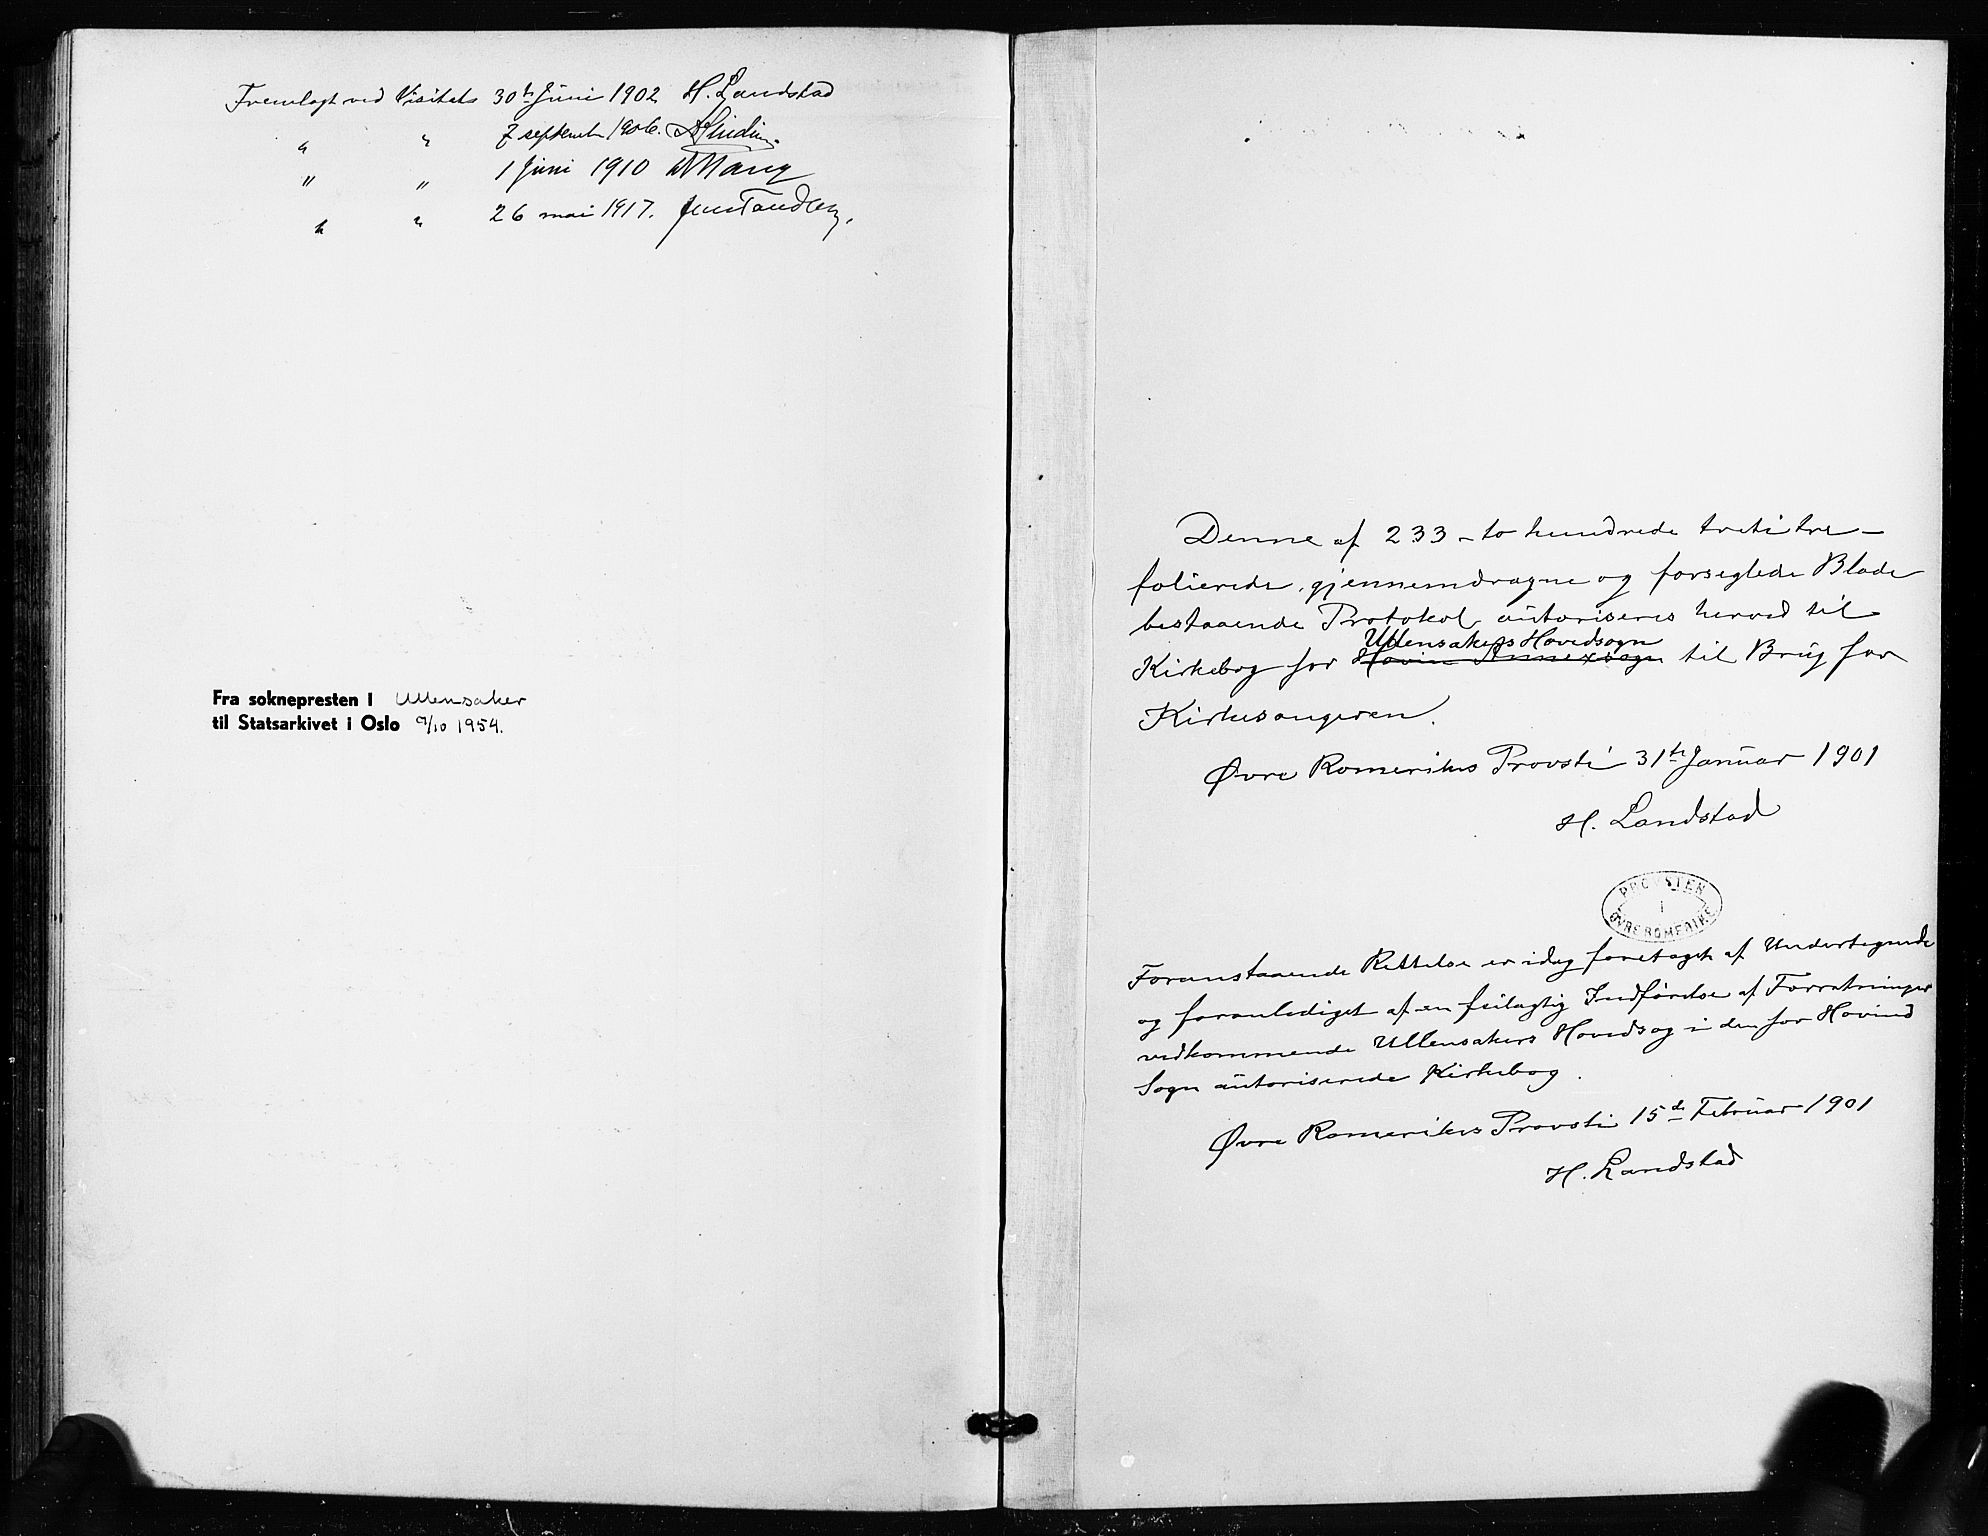 Fremlagt ved Visitats 30te Juni 1902 H. Landstad
" " 7 septemb 1906.
" " 1 Juni 1910
" " 26 mai 1917. Jens Tandberg.
Fra soknepresten i Ullensaker
til Statsarkivet i Oslo 9/10 1954.
Denne af 233 - to hundrede treti tre -
folierede, gjennemdragne og forseglede Blade
bestaaende Protokol autoriseres herved til
Ullensakers Hovedsogn
Kirkebog for Hovin Annexsogn til Brug for
Kirkesangeren.
Øvre Romerikes Provsti 31te Januar 1901
H. Landstad
PROVSTEN
I
ØVRE ROMERIKE
Foranstaaende Rettelse er idag foretaget af Undertegnede
og foranlediget af en feilagtig Indførelse af Forretninger
vedkommende Ullensakers Hovedsog i den for Hovind
Sogn autoriserede Kirkebog.
Øvre Romerikes Provsti 15de Februar 1901
H. Landstad